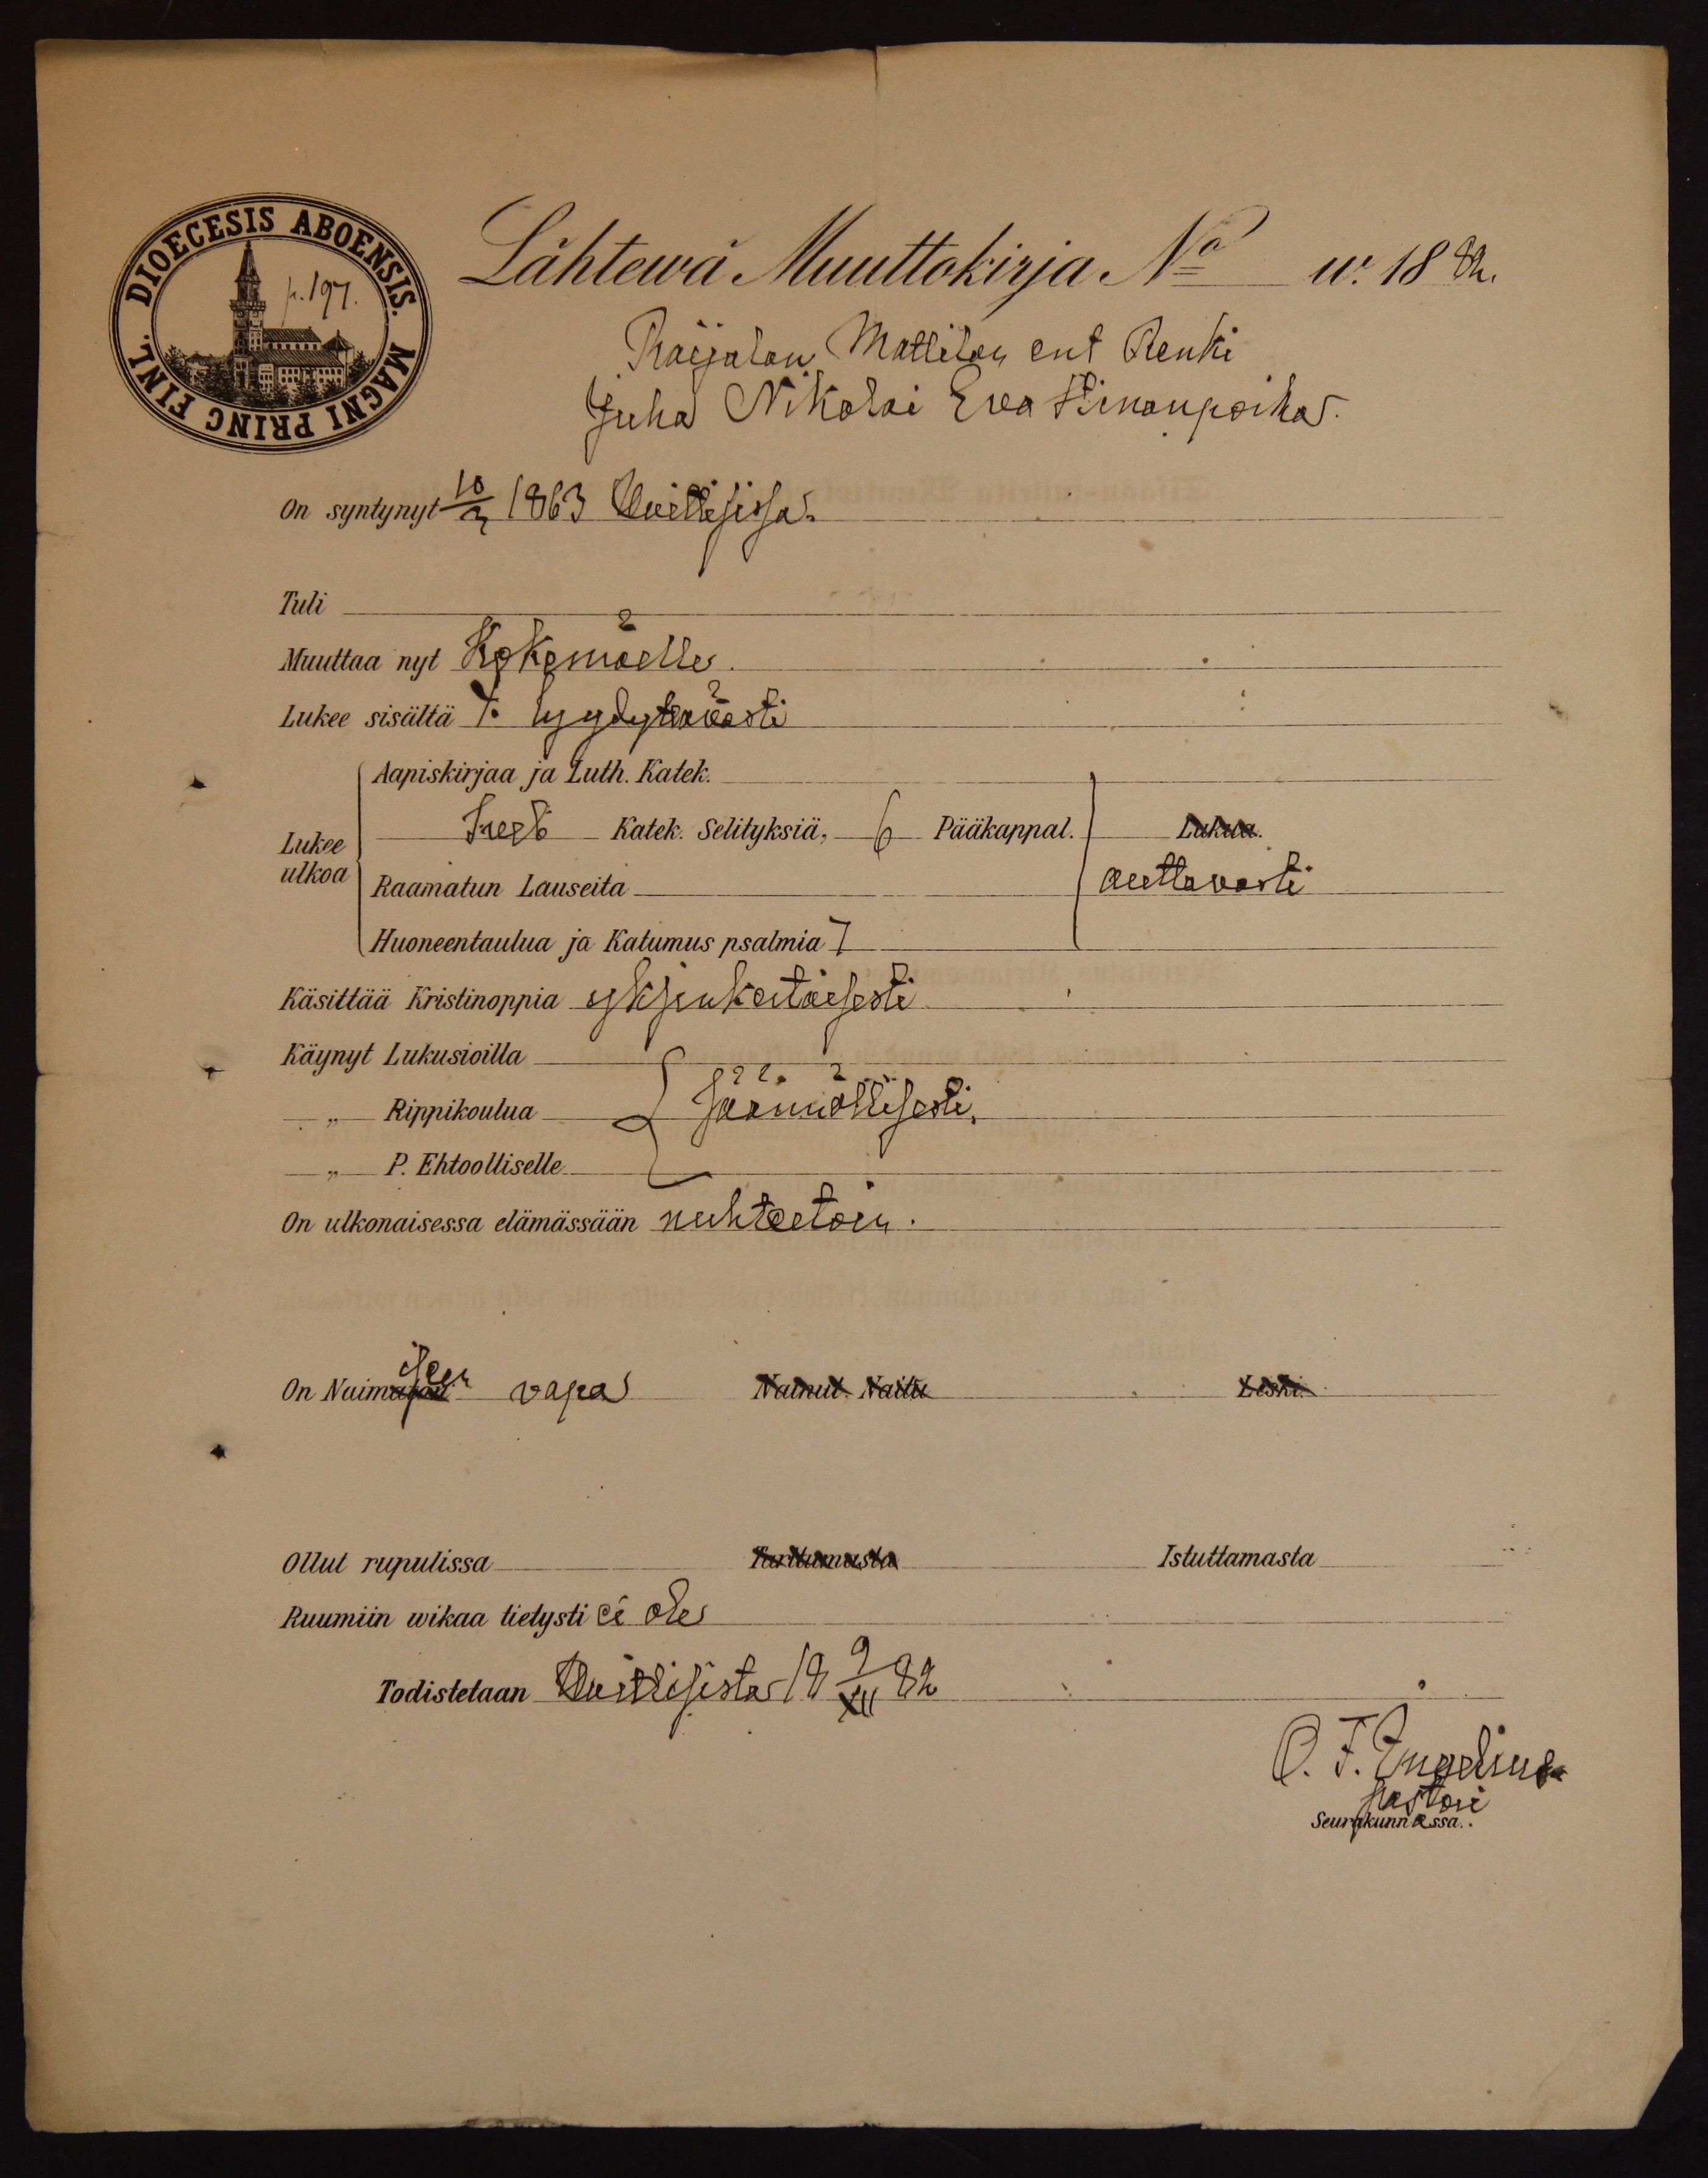 DIOECESIS ABOENSIS. MAGNI PRINC FINL.
p. 197.
Lähtewä Muuttokirja No w. 1882.
Raijalan Mattilan ent Renki
Juha Nikolai Eva Stinanpoika.
On syntynyt 10/3 1863 Huittisissa.
Tuli
Muuttaa nyt Kokemäelle.
Lukee sisältä hyydyttävästi
Aapiskirjaa ja Luth. Katek.
Lukee ulkoa
Katek. Selityksiä, 6 Pääkappal. Lukua.
Raamatun Lauseita auttavasti
Huoneentaulua ja Katumus psalmia 7
Käsittää Kristinoppia yksinkertaisesti
Käynyt Lukusioilla
„ Rippikoulua Säännöllisesti,
„ P. Ehtoolliselle
On ulkonaisessa elämässään nuhteetoin.
On Naimiseen vapa Nainut. Naitu Leski.
Ollut rupulissa Tarttumasta Istuttamasta
Ruumiin wikaa tietysti ei ole
Todistetaan Huittisista 18 9/XII 82
O. F. Ingelius
pastori
Seurakunnassa.